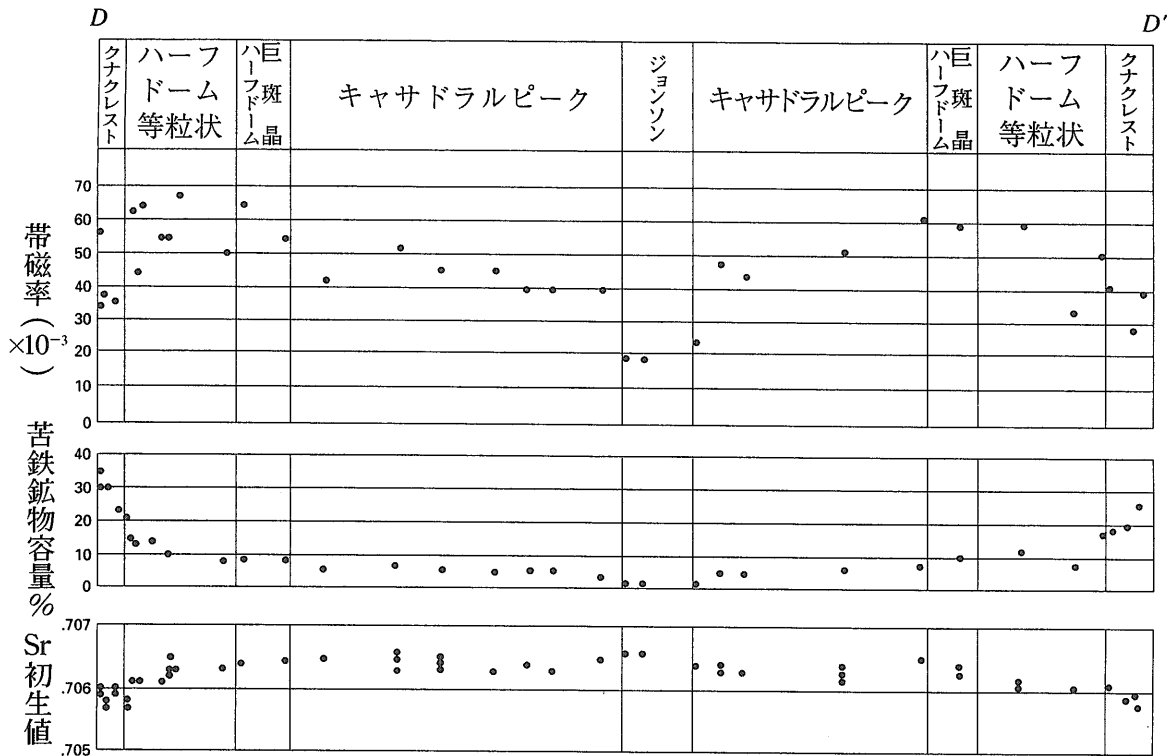 D
D′
クナクレスト
ハーフ
ドーム
等粒状
巨斑晶
ハーフドーム
キャサドラルピーク
ジョンソン
キャサドラルピーク
巨斑晶
ハーフドーム
ハーフ
ドーム
等粒状
クナクレスト
帯磁率(×10⁻³)
70
60
50
40
30
20
10
0
苦鉄鉱物容量%
40
30
20
10
0
Sr初生値
.707
.706
.705